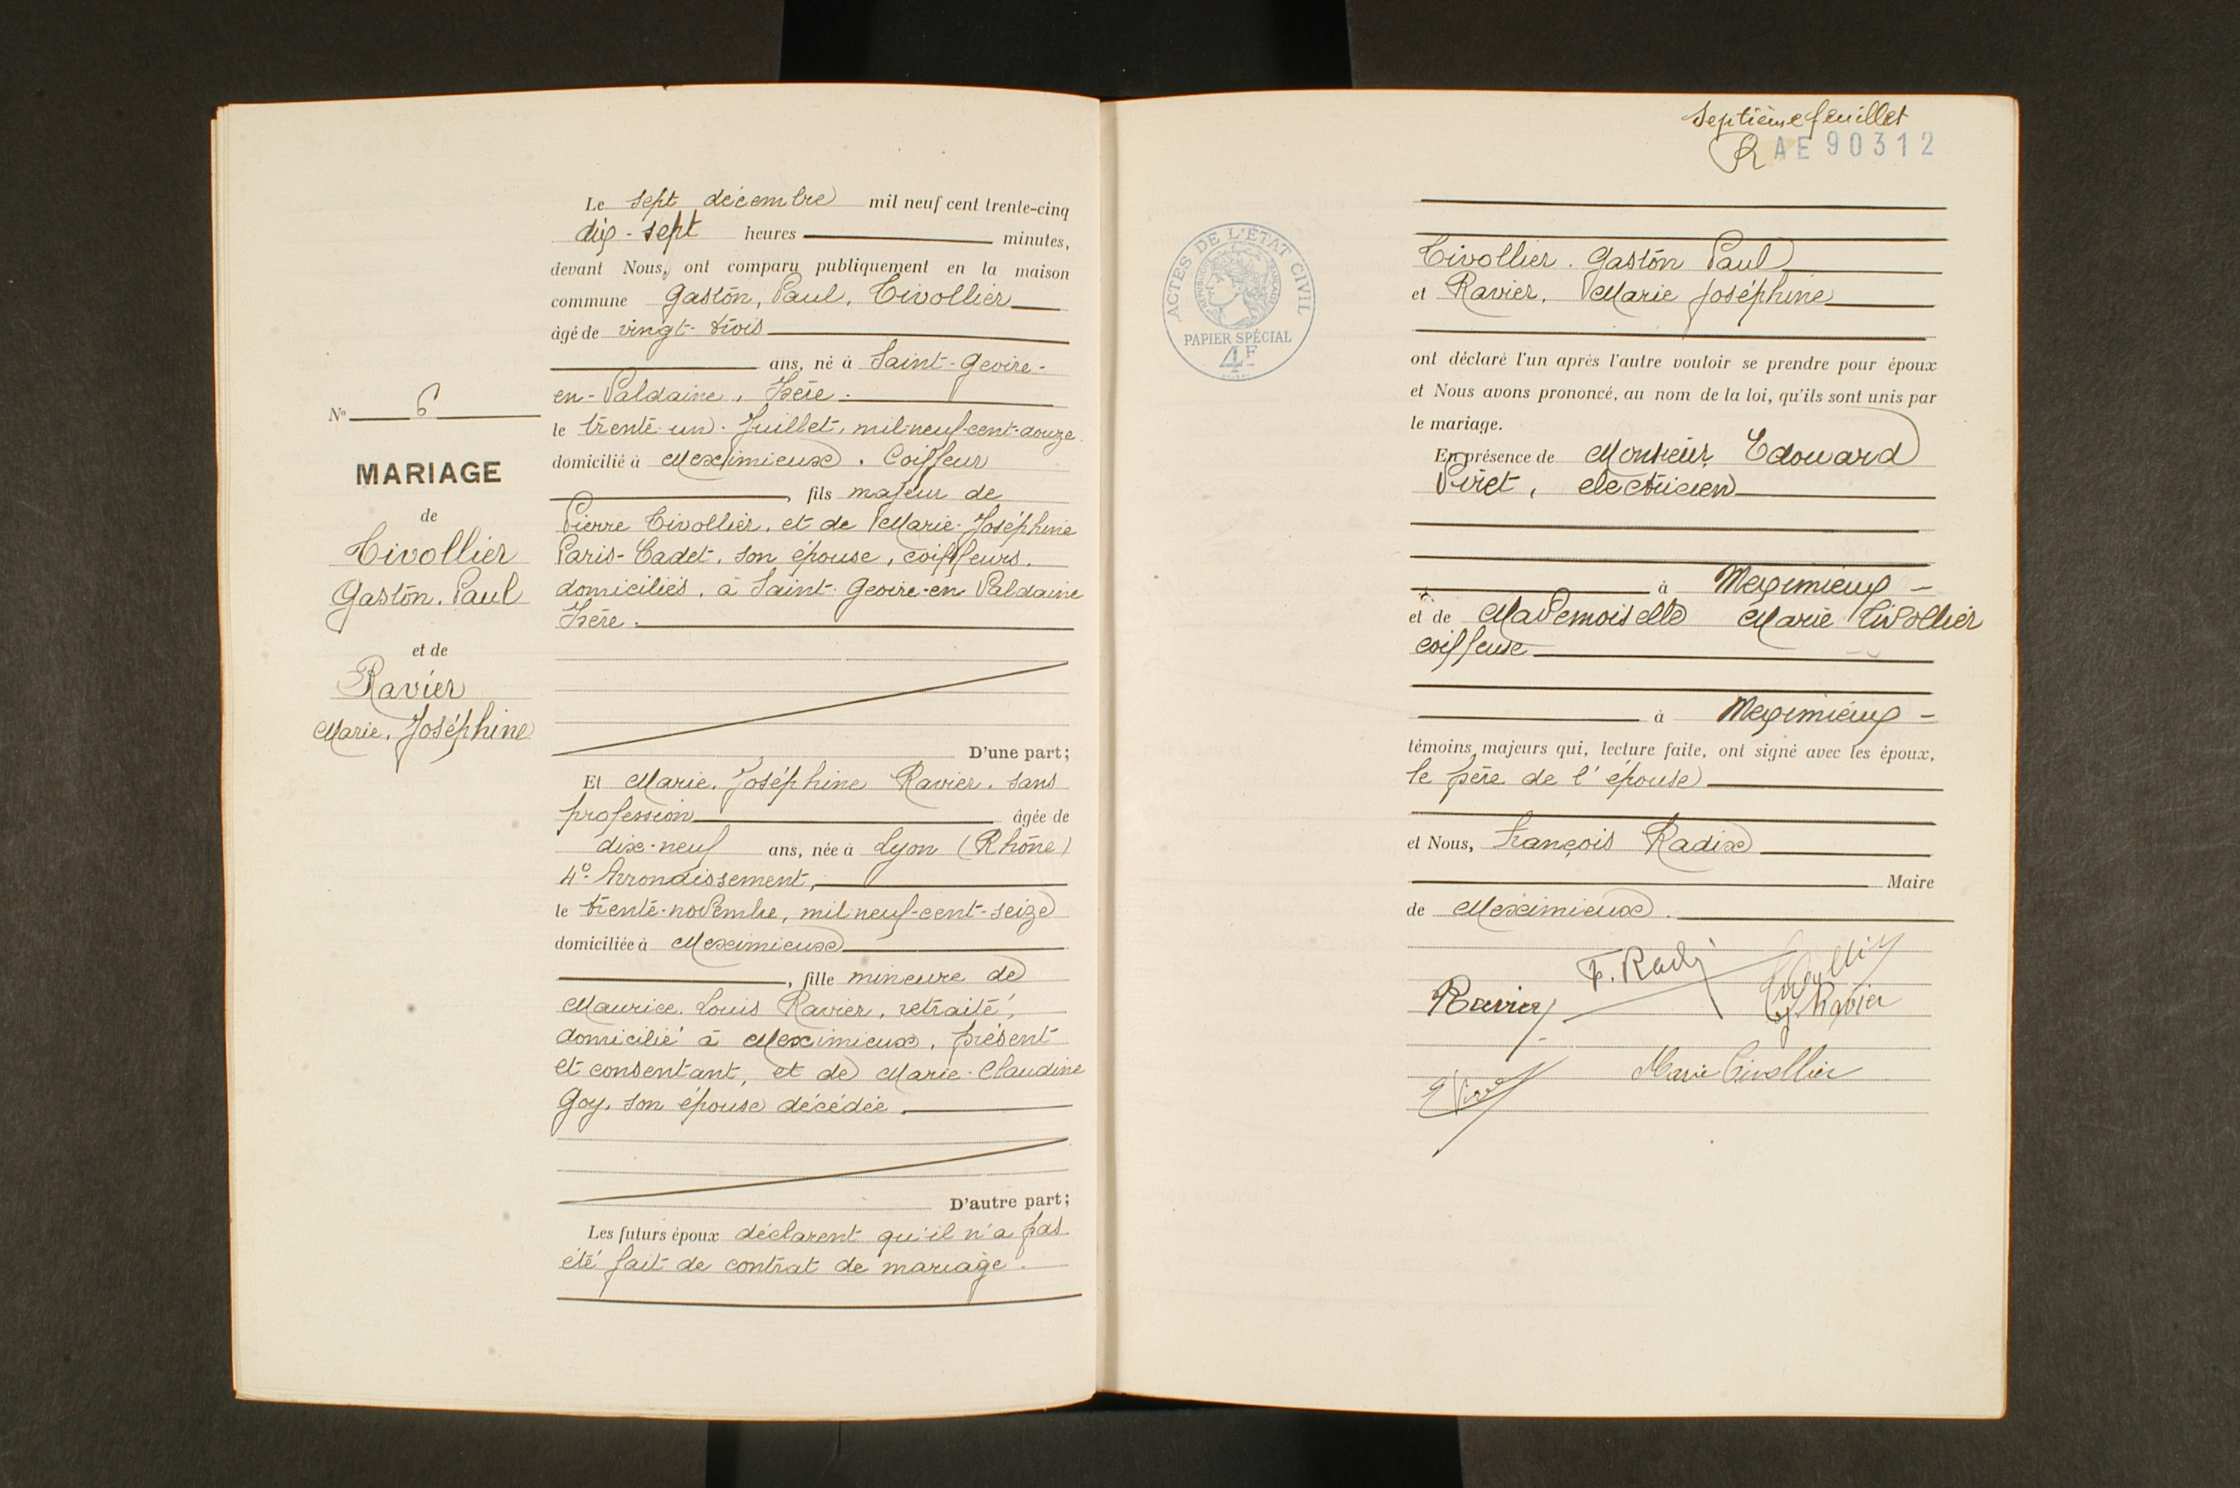 Le sept décembre mil neuf cent trente-cinq
dix-sept heures minutes,
devant Nous, ont comparu publiquement en la maison
commune Gaston, Paul, Tivollier
âgé de vingt-trois
ans, né à Saint-Geoire-
en-Valdaine, Isère.
le trente un Juillet, mil-neuf-cent-douze
domicilié à Meximieux. Coiffeur
, fils majeur de
Pierre Tivollier, et de Marie-Joséphine
Paris-Cadet, son épouse, coiffeurs,
domiciliés, à Saint-Geoire-en Valdaine
Isère.
D'une part;
Et Marie, Joséphine Ravier, sans
profession âgée de
dix-neuf ans, née à Lyon (Rhône)
4e Arrondissement,
le trente-novembre, mil neuf-cent-seize
domiciliée à Meximieux
, fille mineure de
Maurice, Louis Ravier, retraité,
domicilié à Meximieux, présent
et consentant, et de Marie-Claudine
Goy, son épouse décédée.
D'autre part;
Les futurs époux déclarent qu'il n'a pas
été fait de contrat de mariage.
No 6
MARIAGE
de
Tivollier
Gaston, Paul
et de
Ravier
Marie, Joséphine
septième feuillet
R AE 90312
ACTES DE L'ÉTAT CIVIL
RÉPUBLIQUE FRANÇAISE
PAPIER SPÉCIAL
4F
Tivollier. Gaston Paul
et Ravier, Marie Joséphine
ont déclaré l'un après l'autre vouloir se prendre pour époux
et Nous avons prononcé, au nom de la loi, qu'ils sont unis par
le mariage.
En présence de Monsieur Edouard
Viret, electricien
à Meximieux -
et de Mademoiselle Marie Tivollier
coiffeuse
à Meximieux -
témoins majeurs qui, lecture faite, ont signé avec les époux,
le père de l'épouse
et Nous, François Radix
Maire
de Meximieux.
F. Radix
Ravier
Ravier
Marie Tivollier